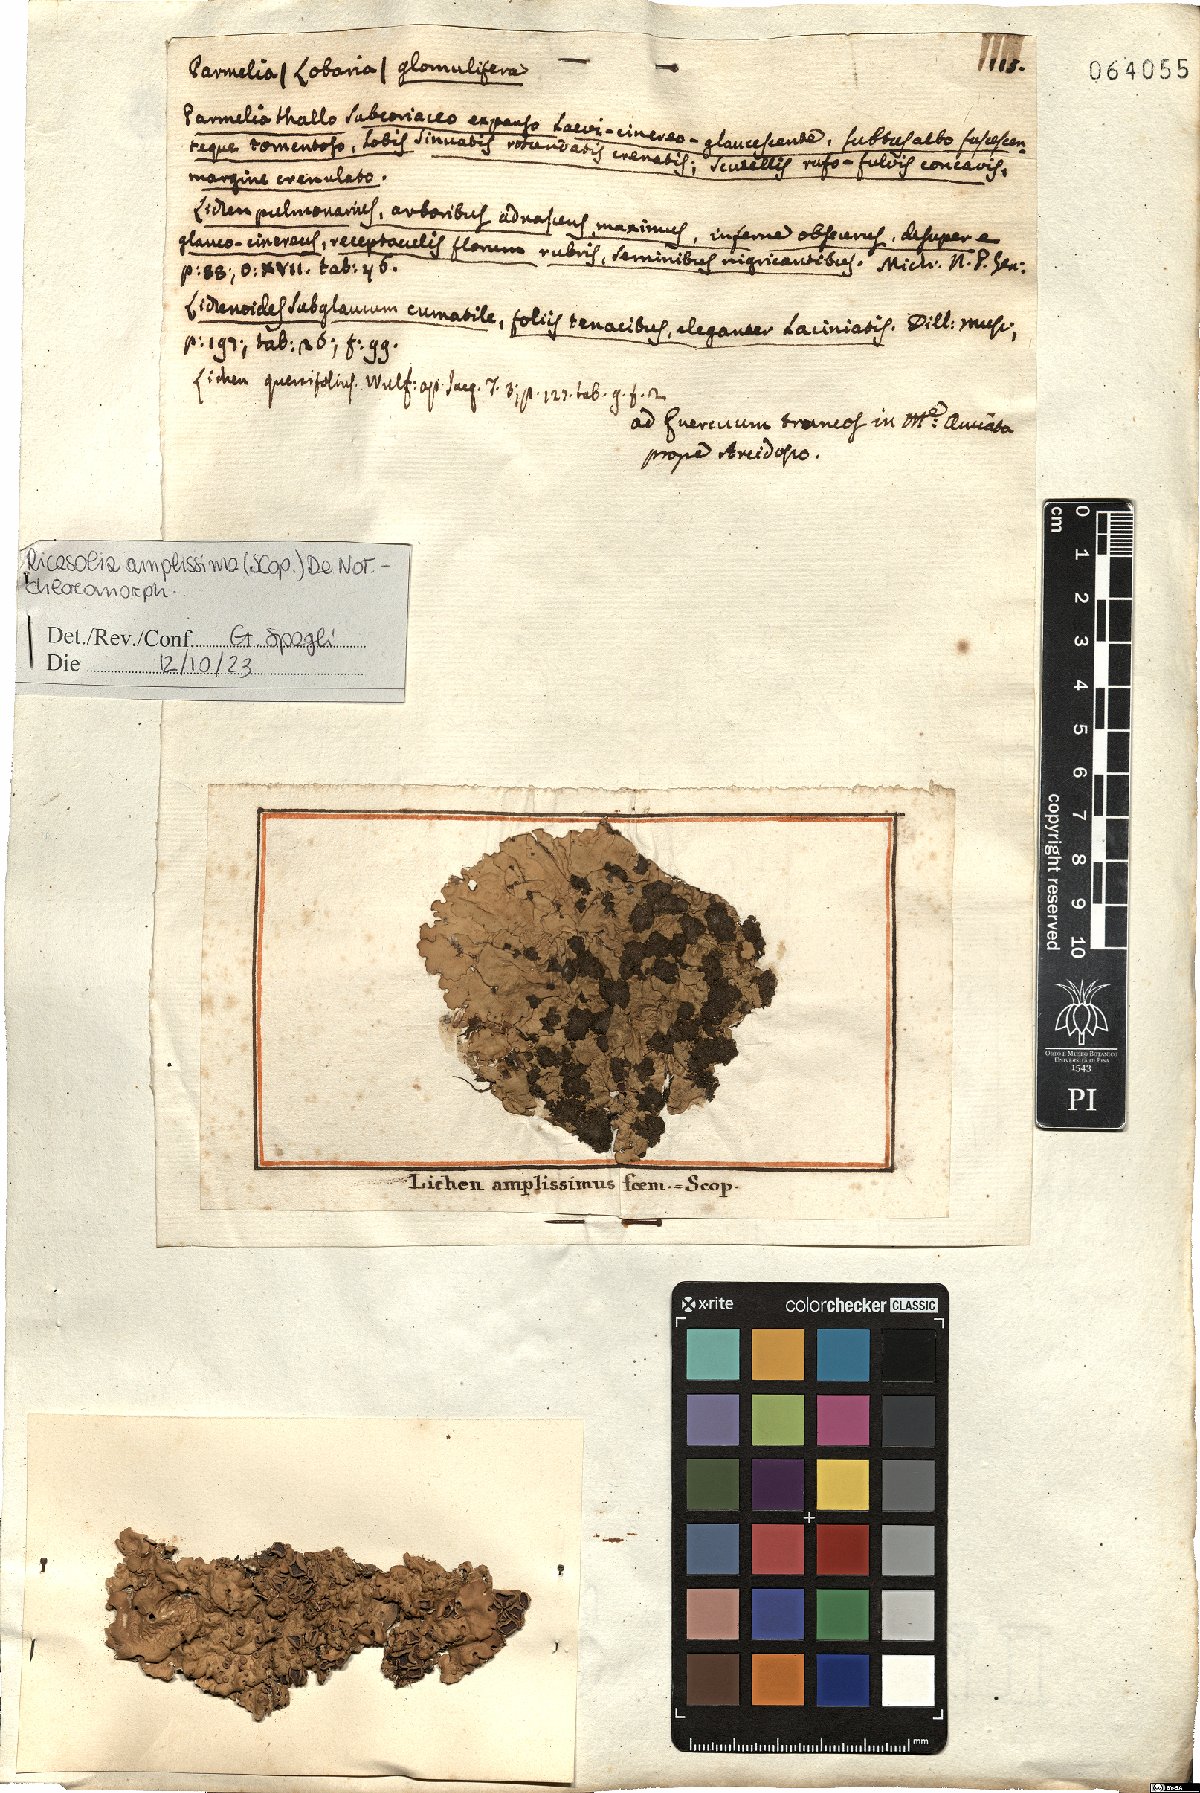 064055
115.
Parmelia / Lobaria / glomulifera
Parmelia thallo subcoriaceo expanso laevi-cinereo-glaucescente, subtus albo fuscescen
teque tomentoso, Lobis sinuatis rotundatis crenatis; scutellis rufo-fulvis concavis,
margine crenulato.
Lichen pulmonarius, arboribus adnascens, maximus, inferne obscurus, desuper e
glauco-cinereus, receptaculis florum rubris, seminibus nigricantibus. Mich: N. P. Gen:
p: 88; O: XVII. tab: 46.
Lichenoides subglaucum cumatile, foliis tenacibus, eleganter Laciniatis. Dill: musc,
p: 197; tab: 26; f: 99.
Lichen quercifolius. Wulf: ap. Jacq. T. 3; p. 127. tab. 9. f. 2
ad Quercuum truncos in Mte: Amiata
prope Arcidosso.
Ricasolia amplissima (Scop.) De Not. -
chloromorph.
Det./Rev./Conf. G. Spagli
Die 12/10/23
cm
0
1
2
3
4
5
6
7
8
9
10
copyright reserved
Orto e Museo Botanico
Università di Pisa
1543
PI
Lichen amplissimus fœm.=Scop.
x-rite
colorchecker CLASSIC
mm
BY-SA